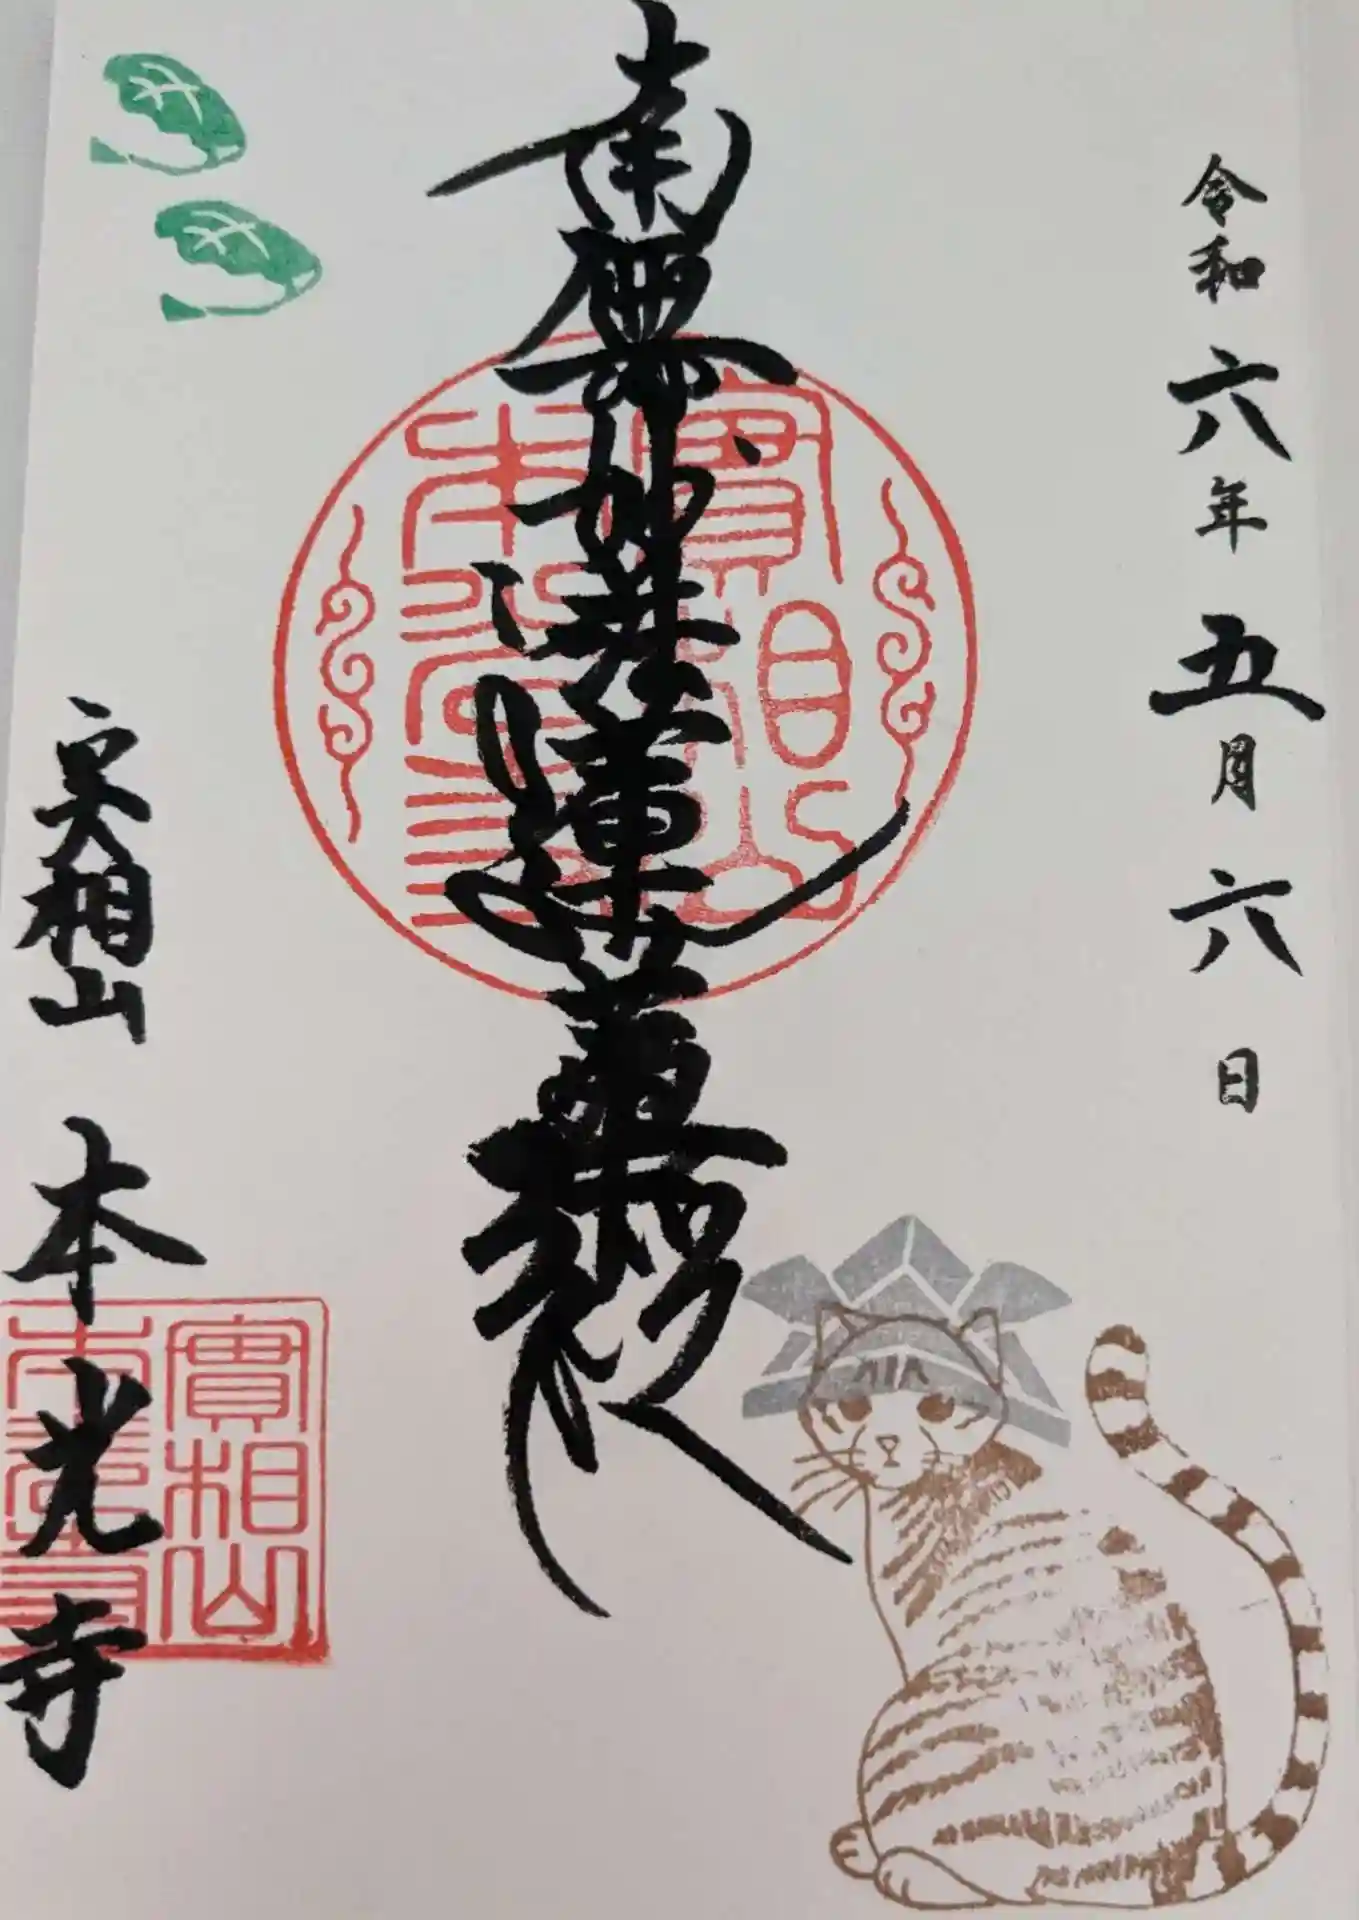 令和六年五月六日
南無妙法蓮華経
実相山 本光寺
實相山
本光寺
實相山
本光寺